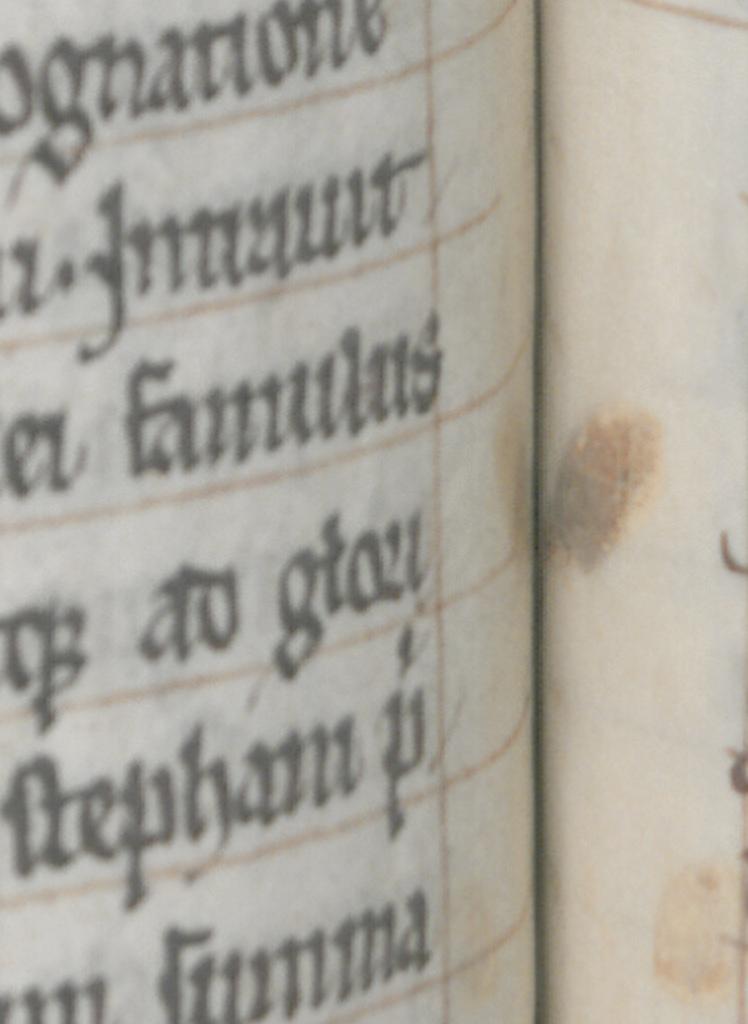 ognatione
Intrauit
ei famulus
ad glori
stephani p
summa